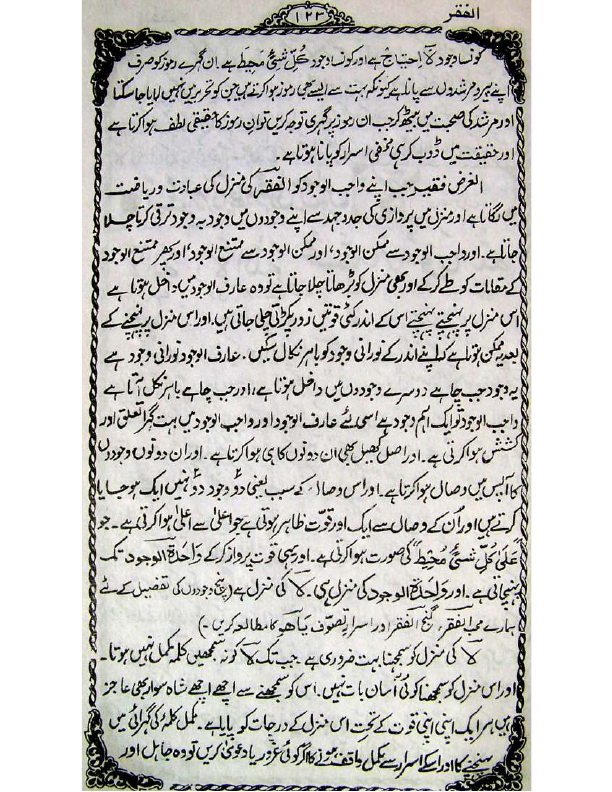 الفقر
۱۲۳
کونسا وجود لَا اِحتیاج ہے اور کونسا وجود کُلِّ شَیْئٍ مُحِیط ہے۔ ان گہرے رموز کو صرف
اپنے پیر و مرشدوں سے پانا ہے کیونکہ بہت سے ایسے بھی رموز ہوا کرتے ہیں جن کو تحریر میں نہیں لایا جا سکتا
اور مرشد کی صحبت میں بیٹھ کر جب ان رموز پر گہری توجہ کریں تو ان رموز کا حقیقی لطف ہوا کرتا ہے
اور حقیقت میں ڈوب کر ہی مخفی اسرار کو پانا ہوتا ہے۔
الغرض فقیر جب اپنے واجب الوجود کو الفقر کی منزل کی عبادت و ریاضت
میں لگاتا ہے اور منزل میں پروازی کی جدوجہد سے اپنے وجودوں میں وجود بہ وجود ترقی کرتا چلا
جاتا ہے۔ اور واجب الوجود سے ممکن الوجود، اور ممکن الوجود سے ممتنع الوجود، اور پھر ممتنع الوجود
کے مقامات کو طے کر کے اور بھی منزل کو بڑھاتا چلا جاتا ہے تو وہ عارف الوجود میں داخل ہوتا ہے
اس منزل پر پہنچتے پہنچتے اس کے اندر کئی قوتیں زور پکڑتی چلی جاتی ہیں۔ اور اس منزل پر پہنچنے کے
بعد یہ ممکن ہوتا ہے کہ اپنے اندر کے نورانی وجود کو باہر نکال سکیں۔ عارف الوجود نورانی وجود ہے
یہ وجود جب چاہے دوسرے وجودوں میں داخل ہوتا ہے، اور جب چاہے باہر نکل آتا ہے
واجب الوجود تو ایک اہم وجود ہے اسی لئے عارف الوجود اور واجب الوجود میں بہت گہرا تعلق اور
کشش ہوا کرتی ہے۔ اور اصل کھیل بھی ان دونوں کا ہی ہوا کرتا ہے۔ اور ان دونوں وجودوں
کا آپس میں وصال ہوا کرتا ہے۔ اور اس وصال کے سبب یعنی دو وجود دو نہیں ایک ہو جایا
کرتے ہیں اور اُن کے وصال سے ایک اور قوّت ظاہر ہوتی ہے جو اعلیٰ سے اعلیٰ ہوا کرتی ہے۔ جو
عَلٰی کُلِّ شَیْئٍ مُحِیْط کی صورت ہوا کرتی ہے۔ اور یہی قوت پرواز کر کے وَاحدَۃُ الوجود تک
پہنچاتی ہے۔ اور وَاحدَۃُ الوجود کی منزل ہی۔ لَا کی منزل ہے (پنج وجودوں کی تفصیل کے لئے
ہمارے محبّ الفقر، گنج الفقر اور اسرارِ تصوّف یَا ھُو کا مطالعہ کریں۔)
لَا کی منزل کو سمجھنا بہت ضروری ہے۔ جب تک لَا کو نہ سمجھیں کلمہ مکمل نہیں ہوتا۔
اور اس منزل کو سمجھنا کوئی آسان بات نہیں۔ اس کو سمجھنے سے اچھے اچھے شاہ سوار بھی عاجز
ہیں ہر ایک اپنی اپنی قوت کے تحت اس منزل کے درجات کو پایا ہے۔ مکمل کلمہ کی گہرائی میں
پہنچنے کا اور اسکے اسرار سے مکمل واقف ہونے کا اگر کوئی غرور یا دعویٰ کریں تو وہ جاہل اور